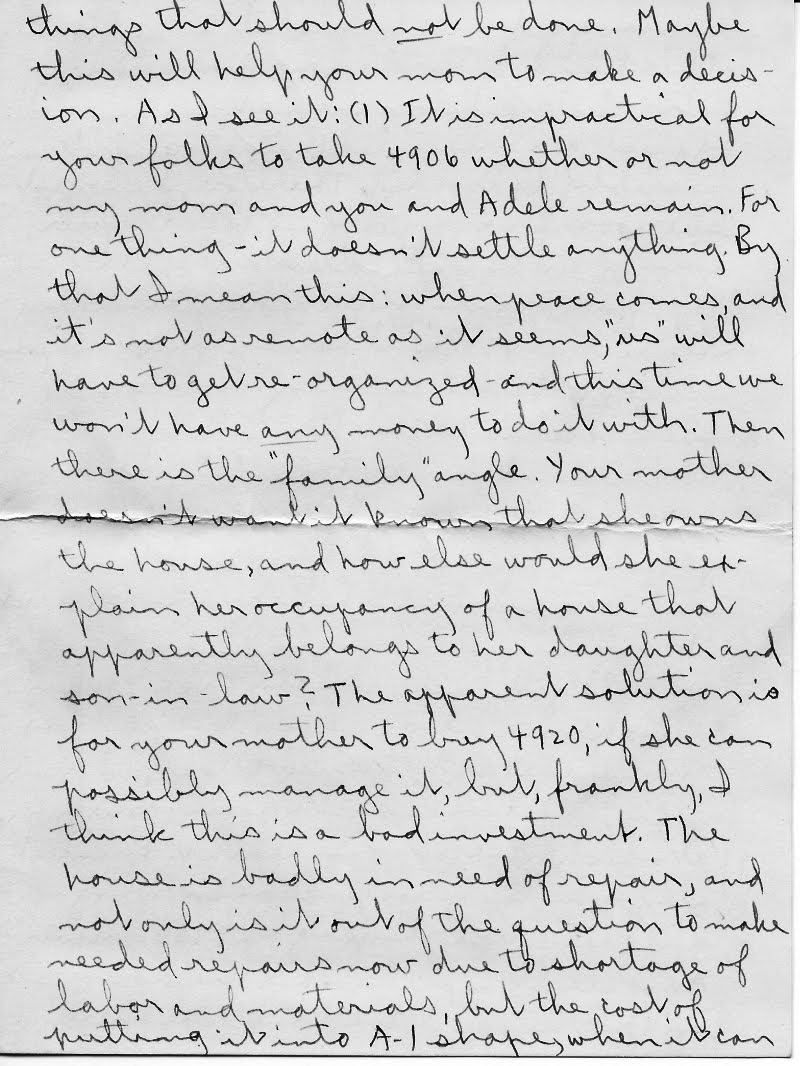 things that should not be done. Maybe
this will help your mom to make a decis-
ion. As I see it: (1) It is impractical for
your folks to take 4906 whether or not
my mom and you and Adele remain. For
one thing - it doesn't settle anything. By
that I mean this: when peace comes, and
it's not as remote as it seems, "us" will
have to get re-organized - and this time we
won't have any money to do it with. Then
there is the "family" angle. Your mother
doesn't want it known that she owns
the house, and how else would she ex-
plain her occupancy of a house that
apparently belongs to her daughter and
son-in-law? The apparent solution is
for your mother to buy 4920, if she can
possibly manage it, but, frankly, I
think this is a bad investment. The
house is badly in need of repair, and
not only is it out of the question to make
needed repairs now due to shortage of
labor and materials, but the cost of
putting it into A-1 shape, when it can